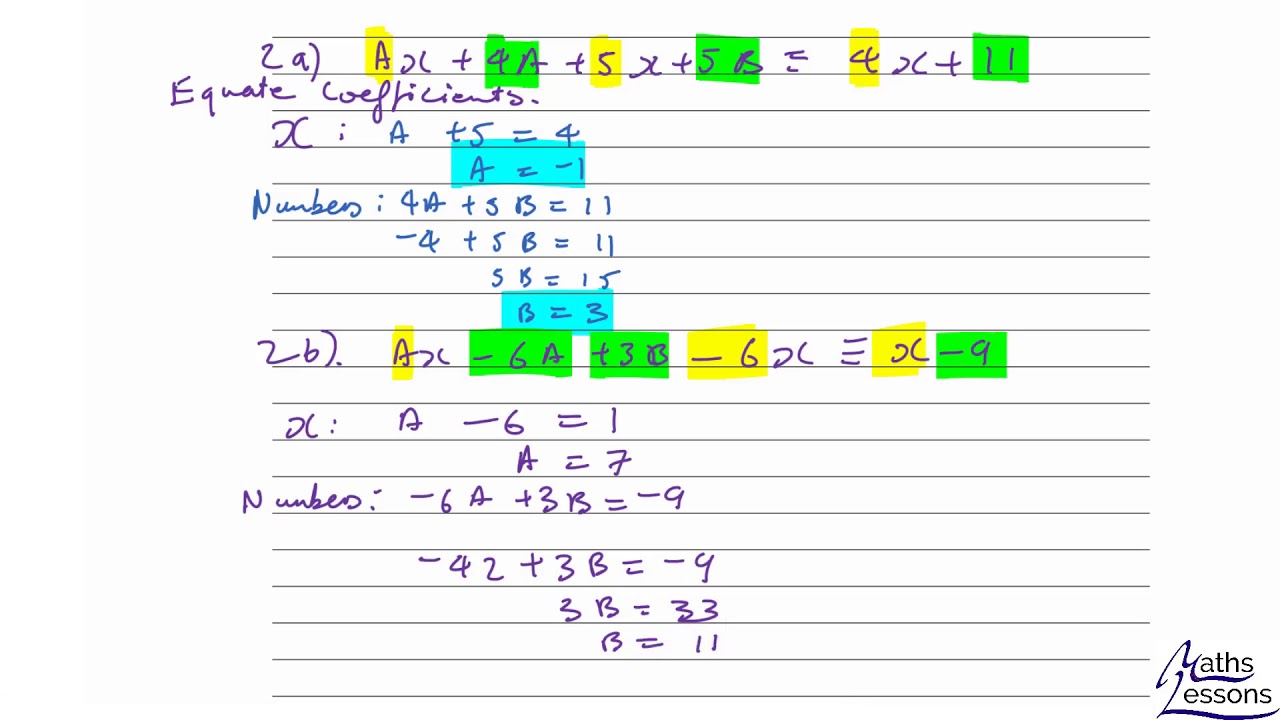 2a) Ax + 4A + 5x + 5B ≡ 4x + 11
Equate coefficients.
x : A + 5 = 4
A = -1
Numbers : 4A + 5B = 11
-4 + 5B = 11
5B = 15
B = 3
2b). Ax - 6A + 3B - 6x ≡ x - 9
x : A - 6 = 1
A = 7
Numbers : -6A + 3B = -9
-42 + 3B = -9
3B = 33
B = 11
Maths
Lessons